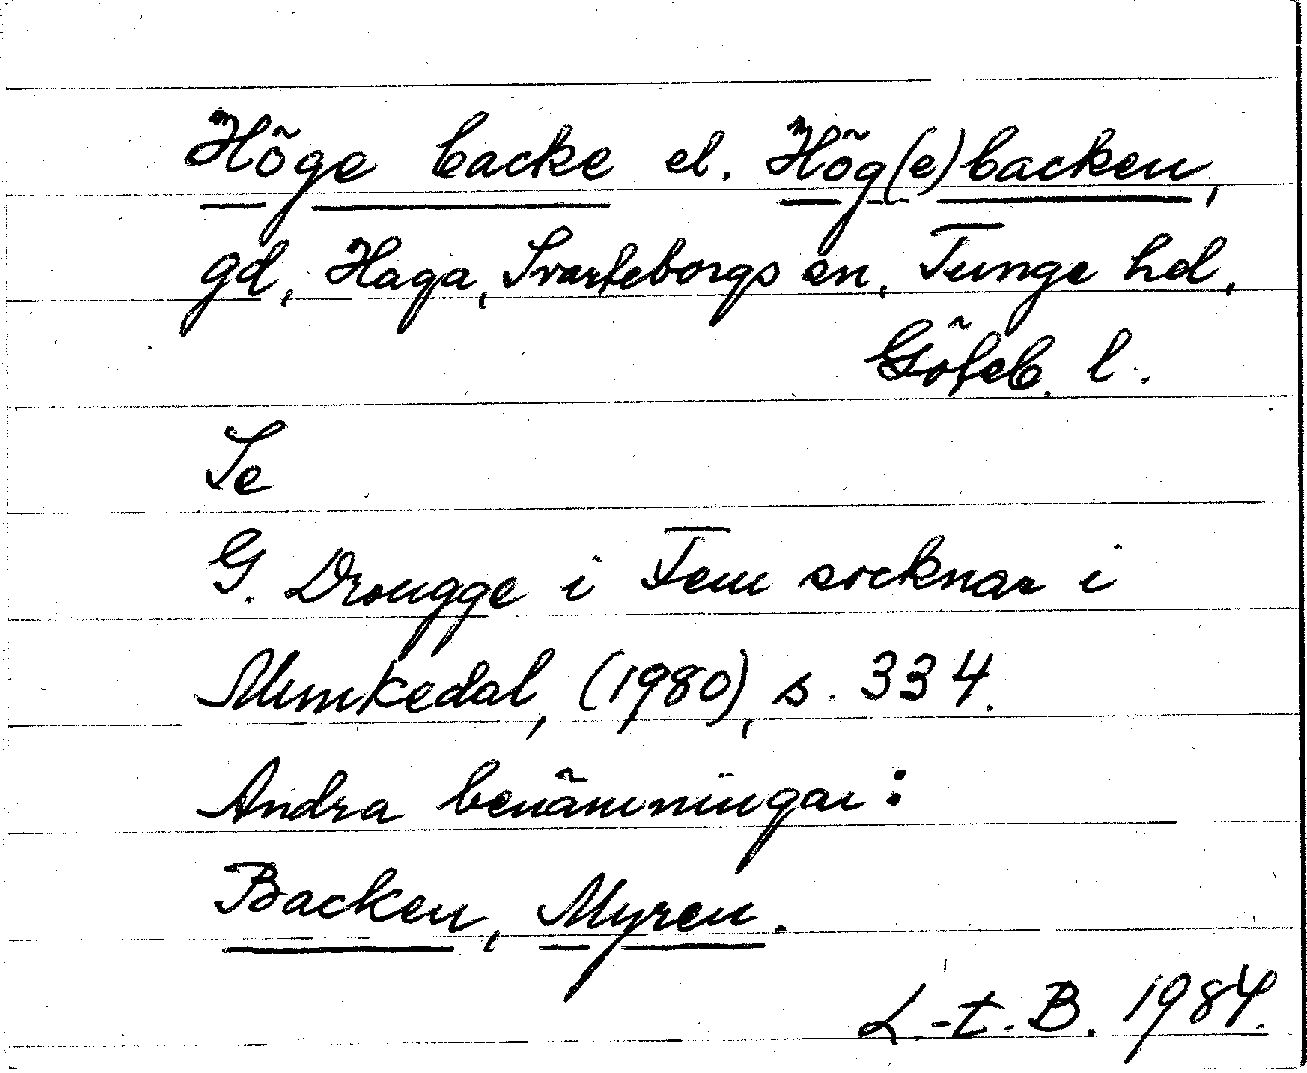 Höge backe el. Hög(e)backen,
gd, Haga, Svarteborgs sn, Tunge hd,
Göteb. l.
Se
G. Drougge i Fem socknar i
Munkedal, (1980), s. 334.
Andra benämningar:
Backen, Myren.
L.-t. B. 1984.